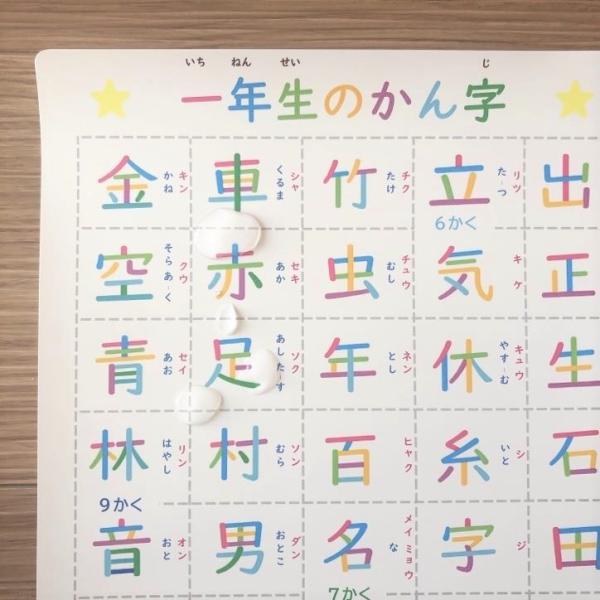 いち ねん せい じ
一年生のかん字
金 キン かね
車 シャ くるま
竹 チク たけ
立 リツ た-つ
出
6かく
空 クウ そら あ-く
赤 セキ あか
虫 チュウ むし
気 キ ケ
正
青 セイ あお
足 ソク あし た-す
年 ネン とし
休 キュウ やす-む
生
林 リン はやし
村 ソン むら
百 ヒャク
糸 シ いと
石
9かく
音 オン おと
男 ダン おとこ
名 メイ ミョウ な
字 ジ
田
7かく